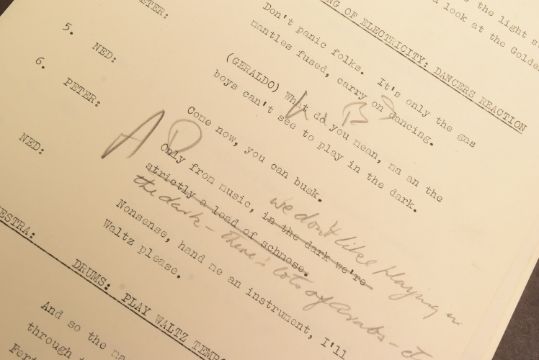 the light s
look at the Golde
NG OF ELECTRICITY: DANCERS REACTION
PETER:
Don't panic folks. It's only the gas
mantles fused, carry on dancing.
5.
NED:
(GERALDO) What do you mean, man the
boys can't see to play in the dark.
6.
PETER:
Come now, you can busk.
NED:
Only from music, in the dark we're
strictly a load of schnose.
we don't like playing in
the dark - there's lots of
Nonsense, hand me an instrument, I'll
Waltz please.
ESTRA:
DRUMS: PLAY WALTZ TEMPO
And so the ma
through t